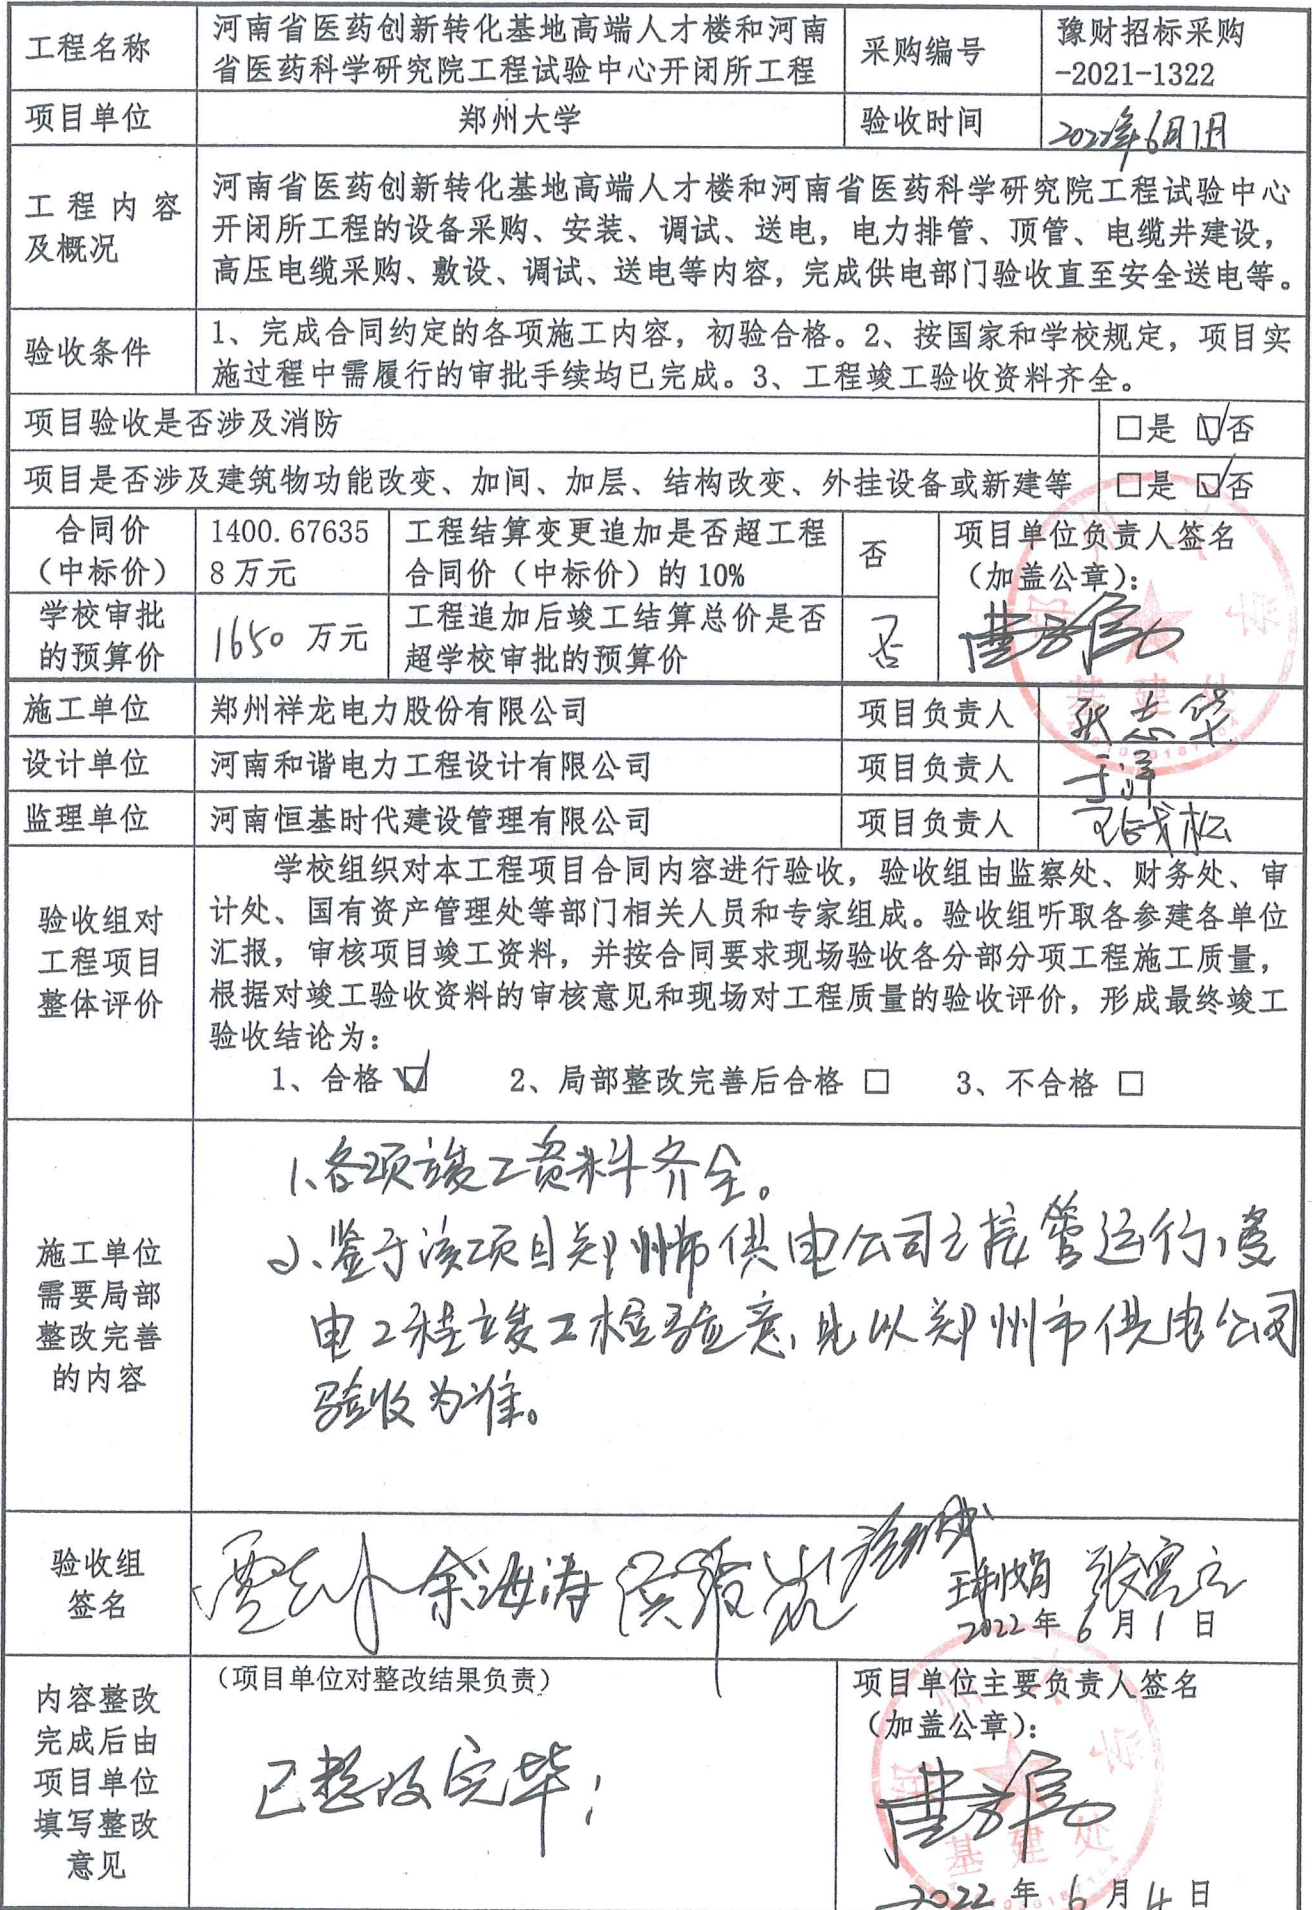 工程名称
河南省医药创新转化基地高端人才楼和河南
省医药科学研究院工程试验中心开闭所工程
采购编号
豫财招标采购
-2021-1322
项目单位
郑州大学
验收时间
2022年6月1日
工程内容
及概况
河南省医药创新转化基地高端人才楼和河南省医药科学研究院工程试验中心
开闭所工程的设备采购、安装、调试、送电，电力排管、顶管、电缆井建设，
高压电缆采购、敷设、调试、送电等内容，完成供电部门验收直至安全送电等。
验收条件
1、完成合同约定的各项施工内容，初验合格。2、按国家和学校规定，项目实
施过程中需履行的审批手续均已完成。3、工程竣工验收资料齐全。
项目验收是否涉及消防
□是 ☑否
项目是否涉及建筑物功能改变、加间、加层、结构改变、外挂设备或新建等
□是 ☑否
合同价
（中标价）
1400.67635
8万元
工程结算变更追加是否超工程
合同价（中标价）的10%
否
项目单位负责人签名
（加盖公章）：
学校审批
的预算价
1650 万元
工程追加后竣工结算总价是否
超学校审批的预算价
否
基建处
施工单位
郑州祥龙电力股份有限公司
项目负责人
张志华
设计单位
河南和谐电力工程设计有限公司
项目负责人
于洋
监理单位
河南恒基时代建设管理有限公司
项目负责人
验收组对
工程项目
整体评价
学校组织对本工程项目合同内容进行验收，验收组由监察处、财务处、审
计处、国有资产管理处等部门相关人员和专家组成。验收组听取各参建各单位
汇报，审核项目竣工资料，并按合同要求现场验收各分部分项工程施工质量，
根据对竣工验收资料的审核意见和现场对工程质量的验收评价，形成最终竣工
验收结论为：
1、合格 ☑ 2、局部整改完善后合格 □ 3、不合格 □
施工单位
需要局部
整改完善
的内容
1、各项竣工资料齐全。
2、鉴于该项目郑州市供电公司已接管运行，变
电工程竣工检验意见以郑州市供电公司
验收为准。
验收组
签名
余海涛
王利娟
2022年6月1日
内容整改
完成后由
项目单位
填写整改
意见
（项目单位对整改结果负责）
已整改完毕！
项目单位主要负责人签名
（加盖公章）：
基建处
2022年6月4日